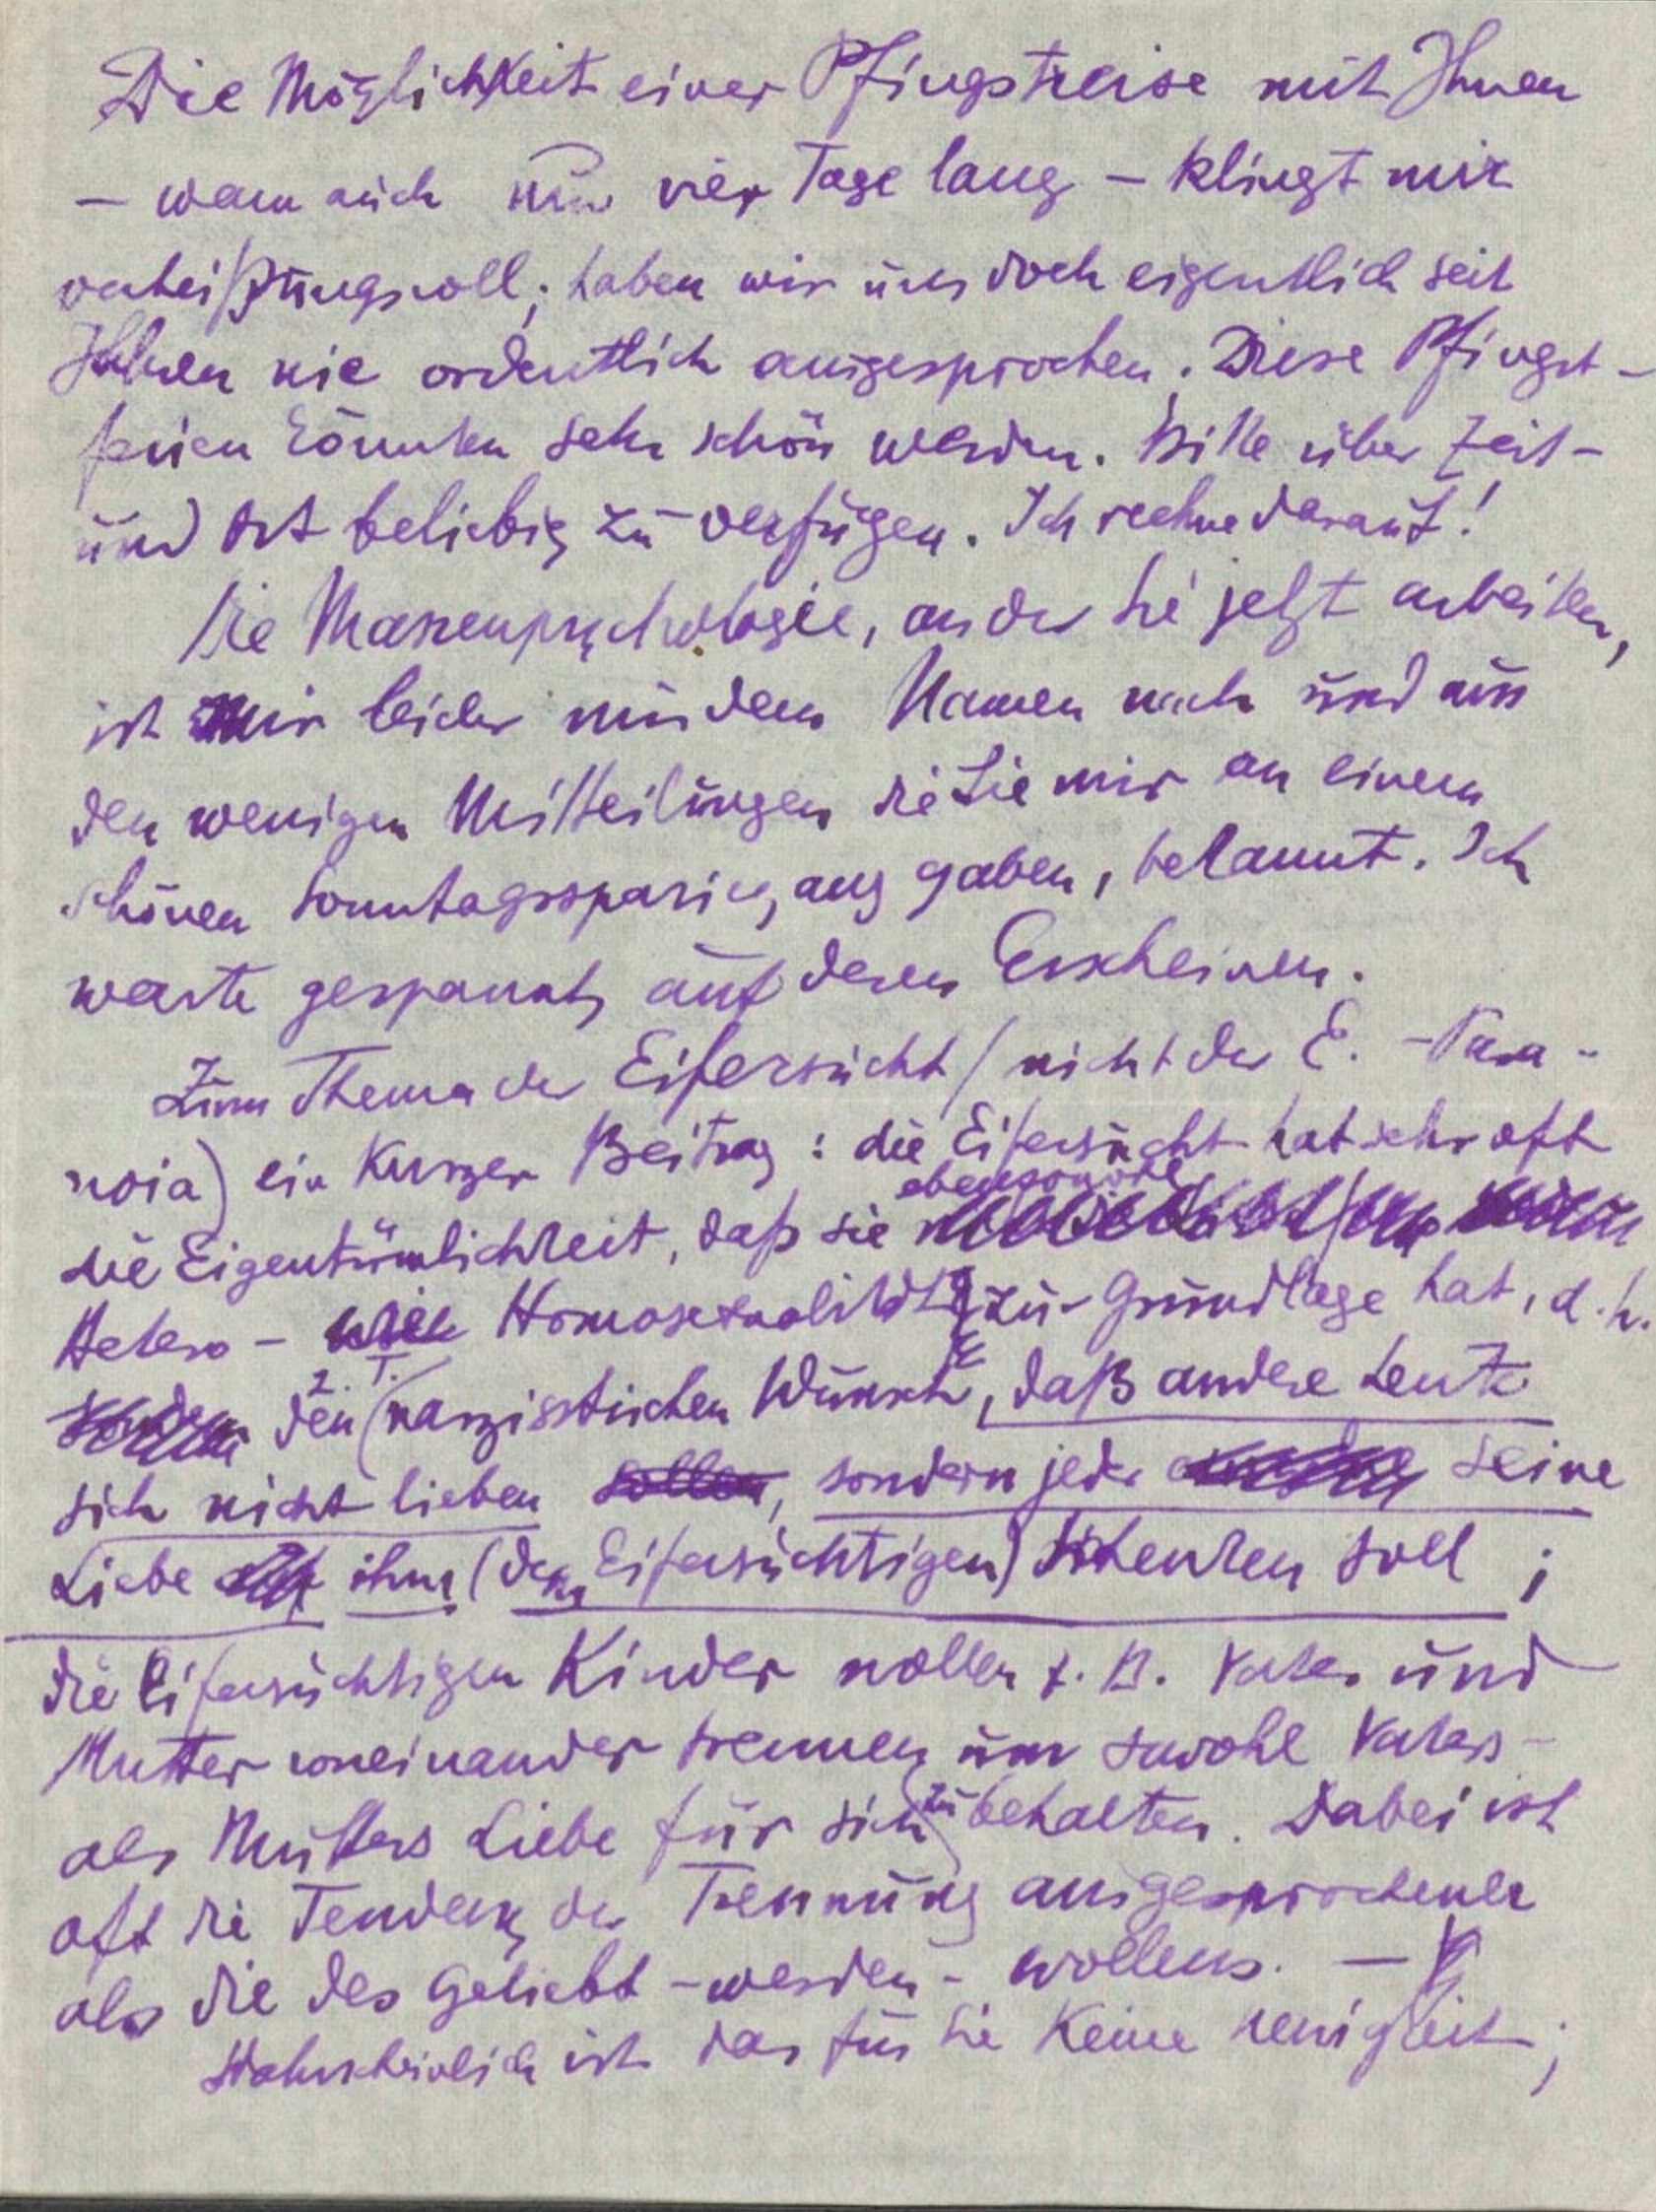 Die Möglichkeit einer Pfingstreise mit Ihnen
– wenn auch nur vier Tage lang – klingt mir
verheißungsvoll; haben wir uns doch eigentlich seit
Jahren nie ordentlich ausgesprochen. Diese Pfingst-
ferien könnten sehr schön werden. Bitte über Zeit-
und Ort beliebig zu verfügen. Ich rechne darauf!
Die Massenpsychologie, an der Sie jetzt arbeiten,
ist mir leider nur dem Namen nach und aus
den wenigen Mitteilungen die Sie mir an einem
schönen Sonntagsspaziergang gaben, bekannt. Ich
warte gespannt auf deren Erscheinen.
Zum Thema der Eifersucht (nicht der E. -Para-
noia) ein kurzer Beitrag: die Eifersucht hat sehr oft
die Eigentümlichkeit, daß sie ebensowohl
Hetero- wie Homosexualität zur Grundlage hat, d. h.
den z. T. narzisstischen Wunsch, daß andere Leute
sich nicht lieben sollen, sondern jeder seine
Liebe ihm (dem Eifersüchtigen) schenken soll;
die eifersüchtigen Kinder wollen z. B. Vater und
Mutter voneinander trennen um sowohl Vaters-
als Mutters Liebe für sich zu behalten. Dabei ist
oft die Tendenz der Trennung ausgesprochener
als die des Geliebt-werden-wollens. –
Wahrscheinlich ist das für Sie keine Neuigkeit;